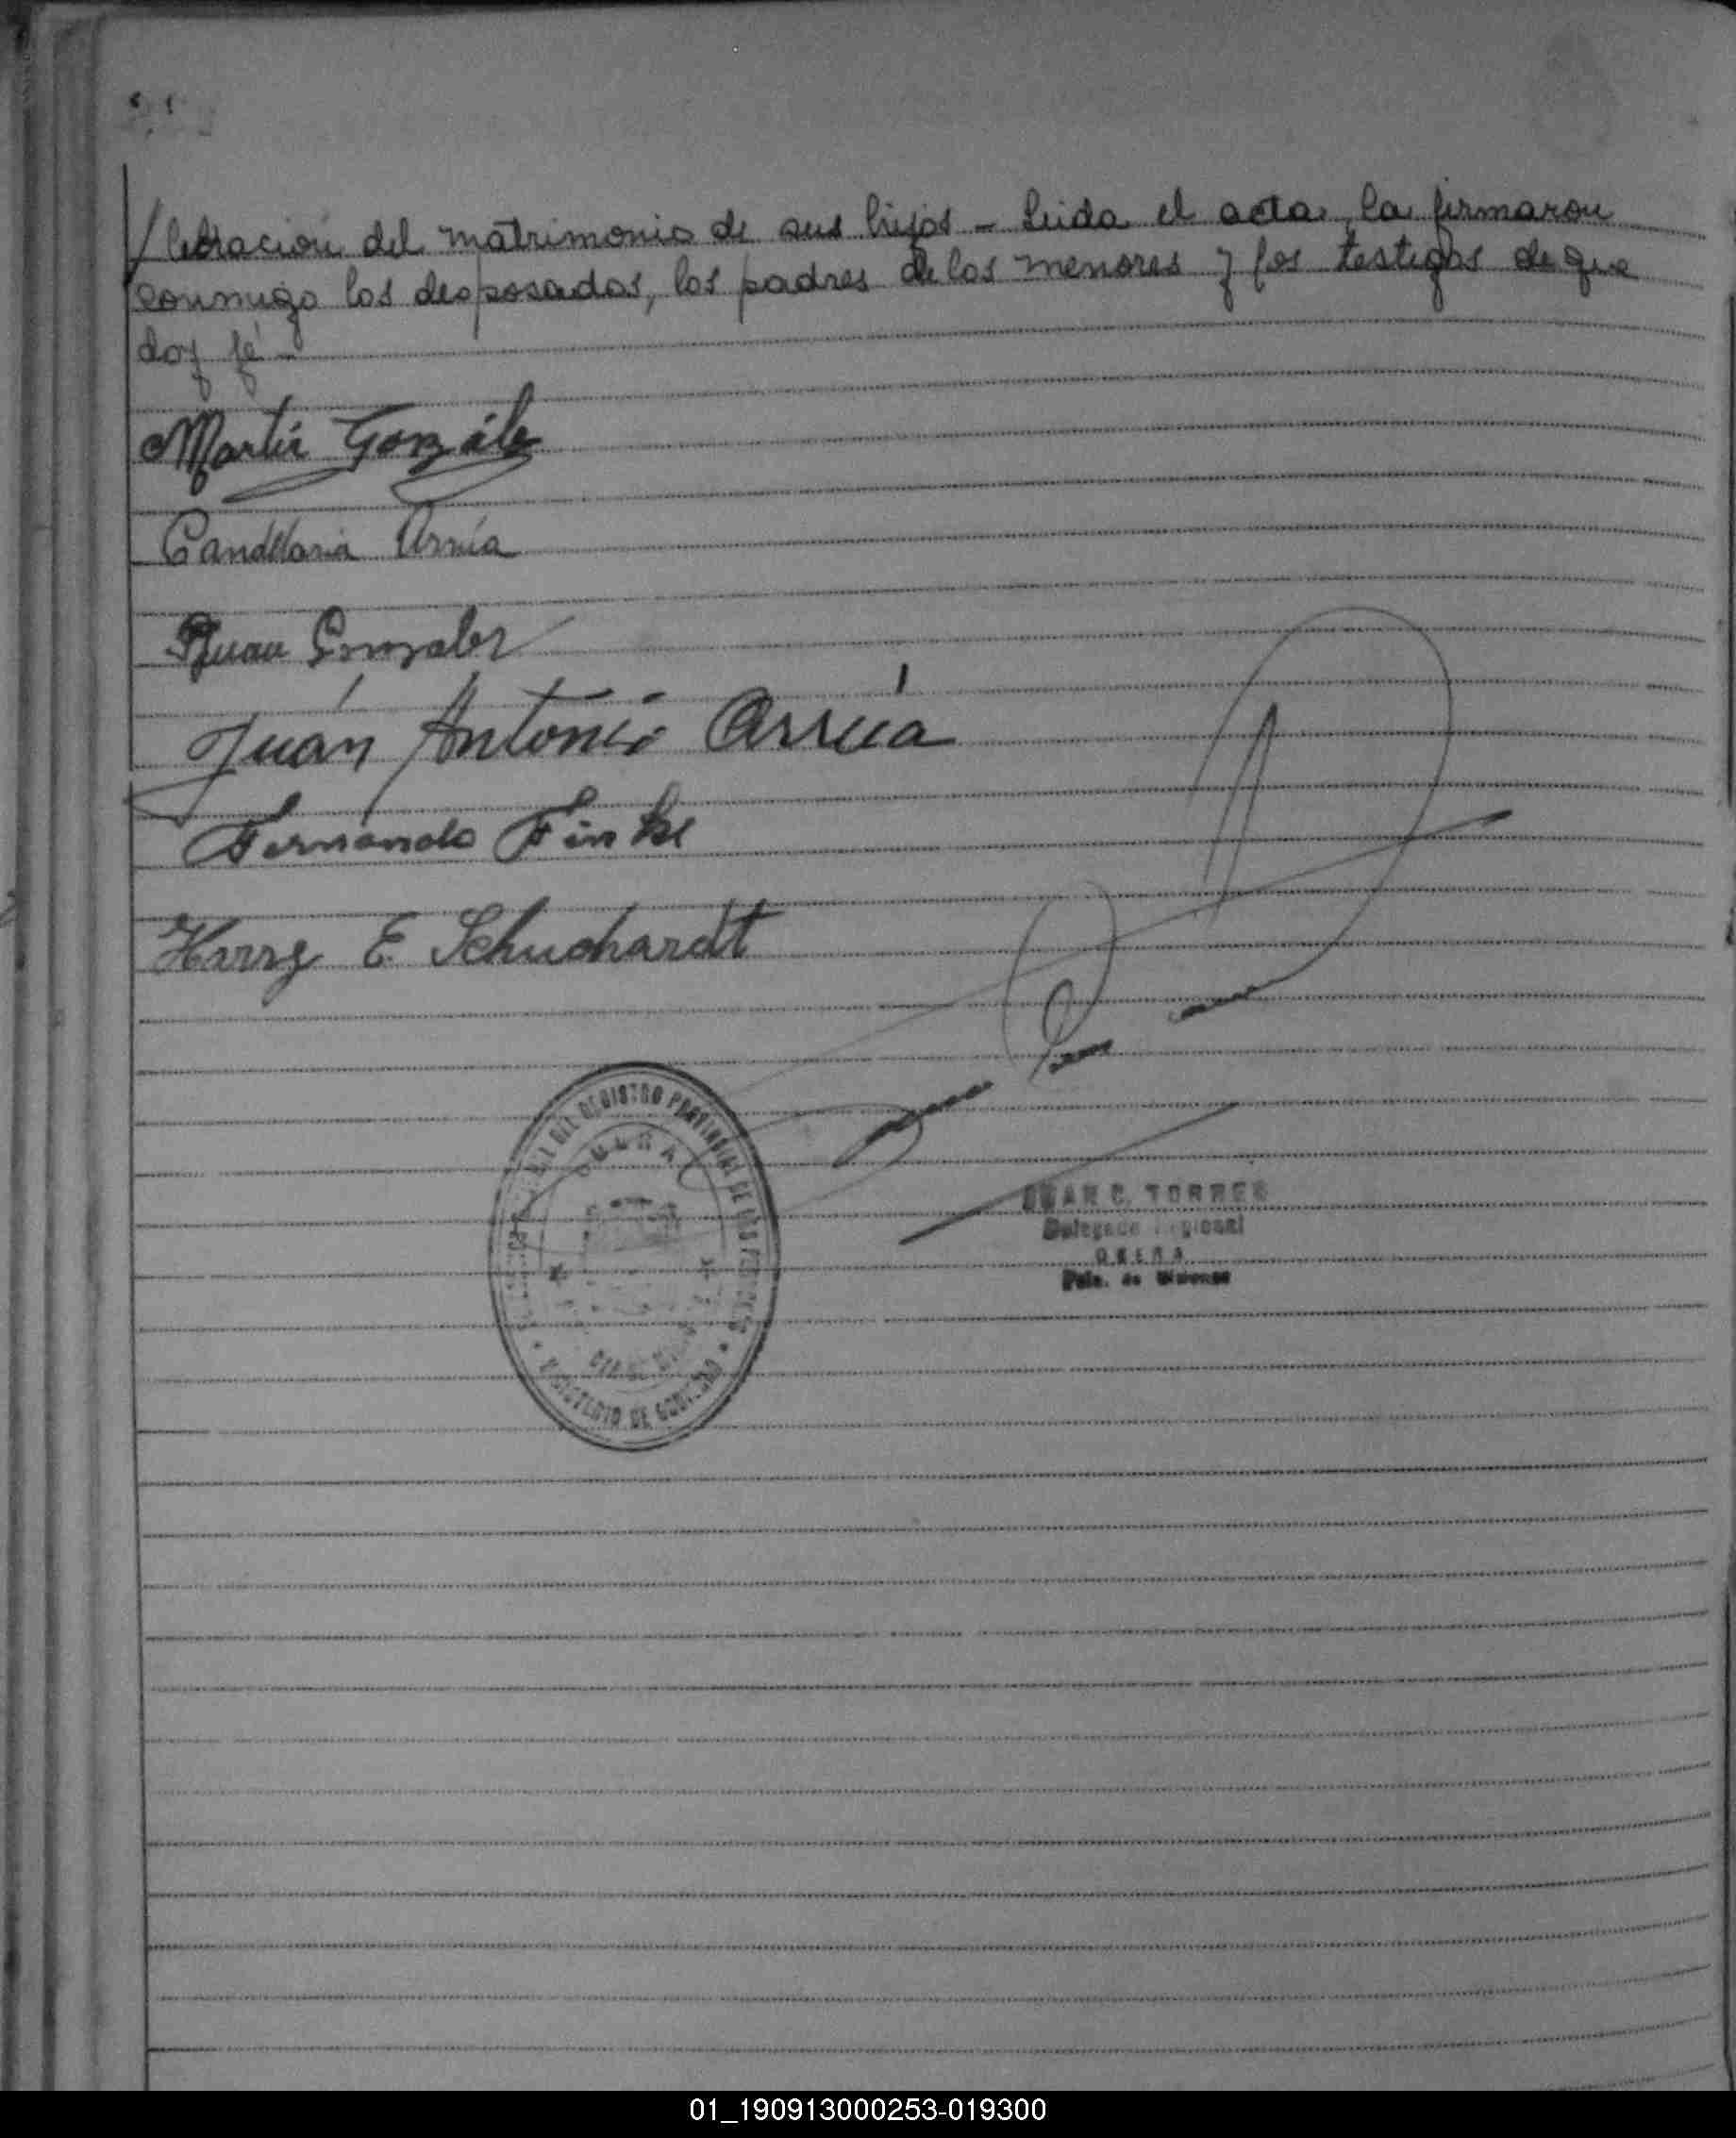 /lebración del matrimonio de sus hijos - Leida el acta, la firmaron
conmigo los desposados, los padres de los menores y los testigos de que
doy fé -
Martin González
Candelaria Arrúa
Juan Gonzalez
Juán Antonio Arrúa
Fernando Finke
Harry E Schuchardt
DEL REGISTRO PROVINCIAL DE LAS PERSONAS
OBERA
MINISTERIO DE GOBIERNO
JUAN C. TORRES
Delegado Regional
OBERA
Pcia. de Misiones
01_190913000253-019300